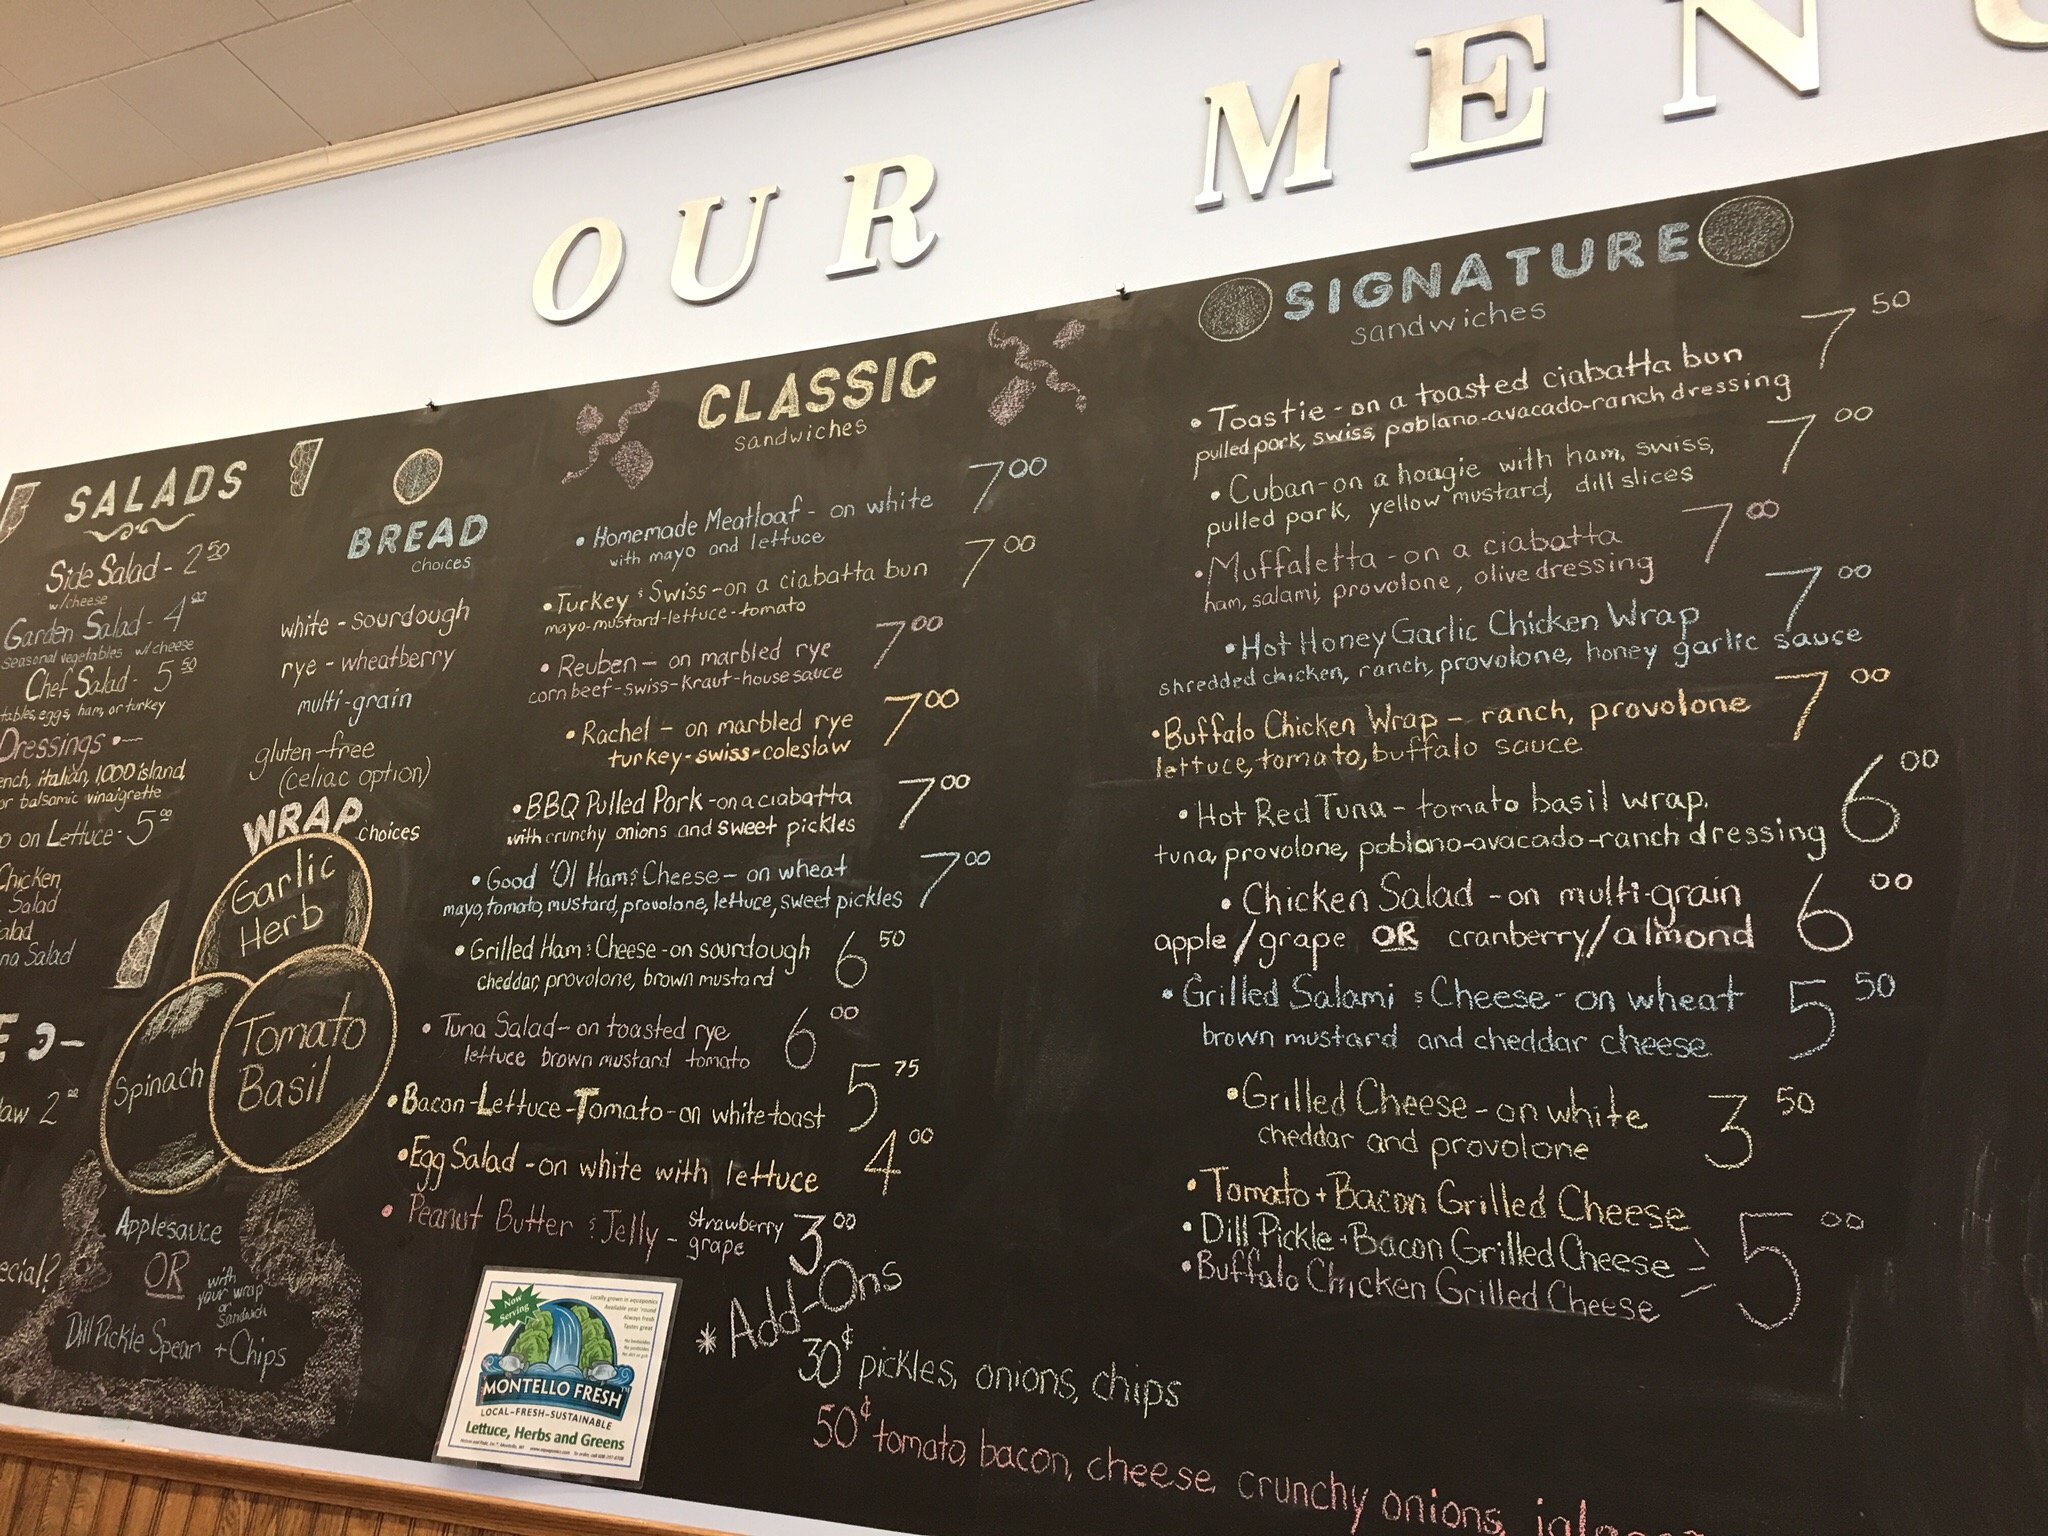 OUR MENU
SALADS
Side Salad - 2.50
w/cheese
Garden Salad - 4
seasonal vegetables w/ cheese
Chef Salad - 5.50
eggs, ham, or turkey
Dressings
italian, 1000 island,
or balsamic vinaigrette
on Lettuce - 5.00
Chicken
Salad
Salad
2
BREAD
choices
white - sourdough
rye - wheatberry
multi-grain
gluten-free
(celiac option)
WRAP
choices
Garlic
Herb
Spinach
Tomato
Basil
Applesauce
OR
with
your wrap
or
sandwich
Dill Pickle Spear + Chips
CLASSIC
sandwiches
• Homemade Meatloaf - on white 7.00
with mayo and lettuce
• Turkey & Swiss - on a ciabatta bun 7.00
mayo-mustard-lettuce-tomato
• Reuben - on marbled rye 7.00
corn beef-swiss-kraut-house sauce
• Rachel - on marbled rye 7.00
turkey-swiss-coleslaw
• BBQ Pulled Pork - on a ciabatta 7.00
with crunchy onions and sweet pickles
• Good 'Ol Ham & Cheese - on wheat 7.00
mayo, tomato, mustard, provolone, lettuce, sweet pickles
• Grilled Ham & Cheese - on sourdough 6.50
cheddar, provolone, brown mustard
• Tuna Salad - on toasted rye 6.00
lettuce brown mustard tomato
• Bacon-Lettuce-Tomato - on white toast 5.75
• Egg Salad - on white with lettuce 4.00
• Peanut Butter & Jelly - strawberry 3.00
grape
Now
Serving
Locally grown in aquaponics
Available year 'round
Always fresh
Tastes great
MONTELLO FRESH™
LOCAL-FRESH-SUSTAINABLE
Lettuce, Herbs and Greens
* Add-Ons
30¢ pickles, onions, chips
50¢ tomato, bacon, cheese, crunchy onions,
SIGNATURE
sandwiches
• Toastie - on a toasted ciabatta bun 7.50
pulled pork, swiss, poblano-avacado-ranch dressing
• Cuban - on a hoagie with ham, swiss, 7.00
pulled pork, yellow mustard, dill slices
• Muffaletta - on a ciabatta 7.00
ham, salami, provolone, olive dressing
• Hot Honey Garlic Chicken Wrap 7.00
shredded chicken, ranch, provolone, honey garlic sauce
• Buffalo Chicken Wrap - ranch, provolone 7.00
lettuce, tomato, buffalo sauce
• Hot Red Tuna - tomato basil wrap, 6.00
tuna, provolone, poblano-avacado-ranch dressing
• Chicken Salad - on multi-grain 6.00
apple/grape OR cranberry/almond
• Grilled Salami & Cheese - on wheat 5.50
brown mustard and cheddar cheese
• Grilled Cheese - on white 3.50
cheddar and provolone
• Tomato + Bacon Grilled Cheese
• Dill Pickle + Bacon Grilled Cheese 5.00
• Buffalo Chicken Grilled Cheese